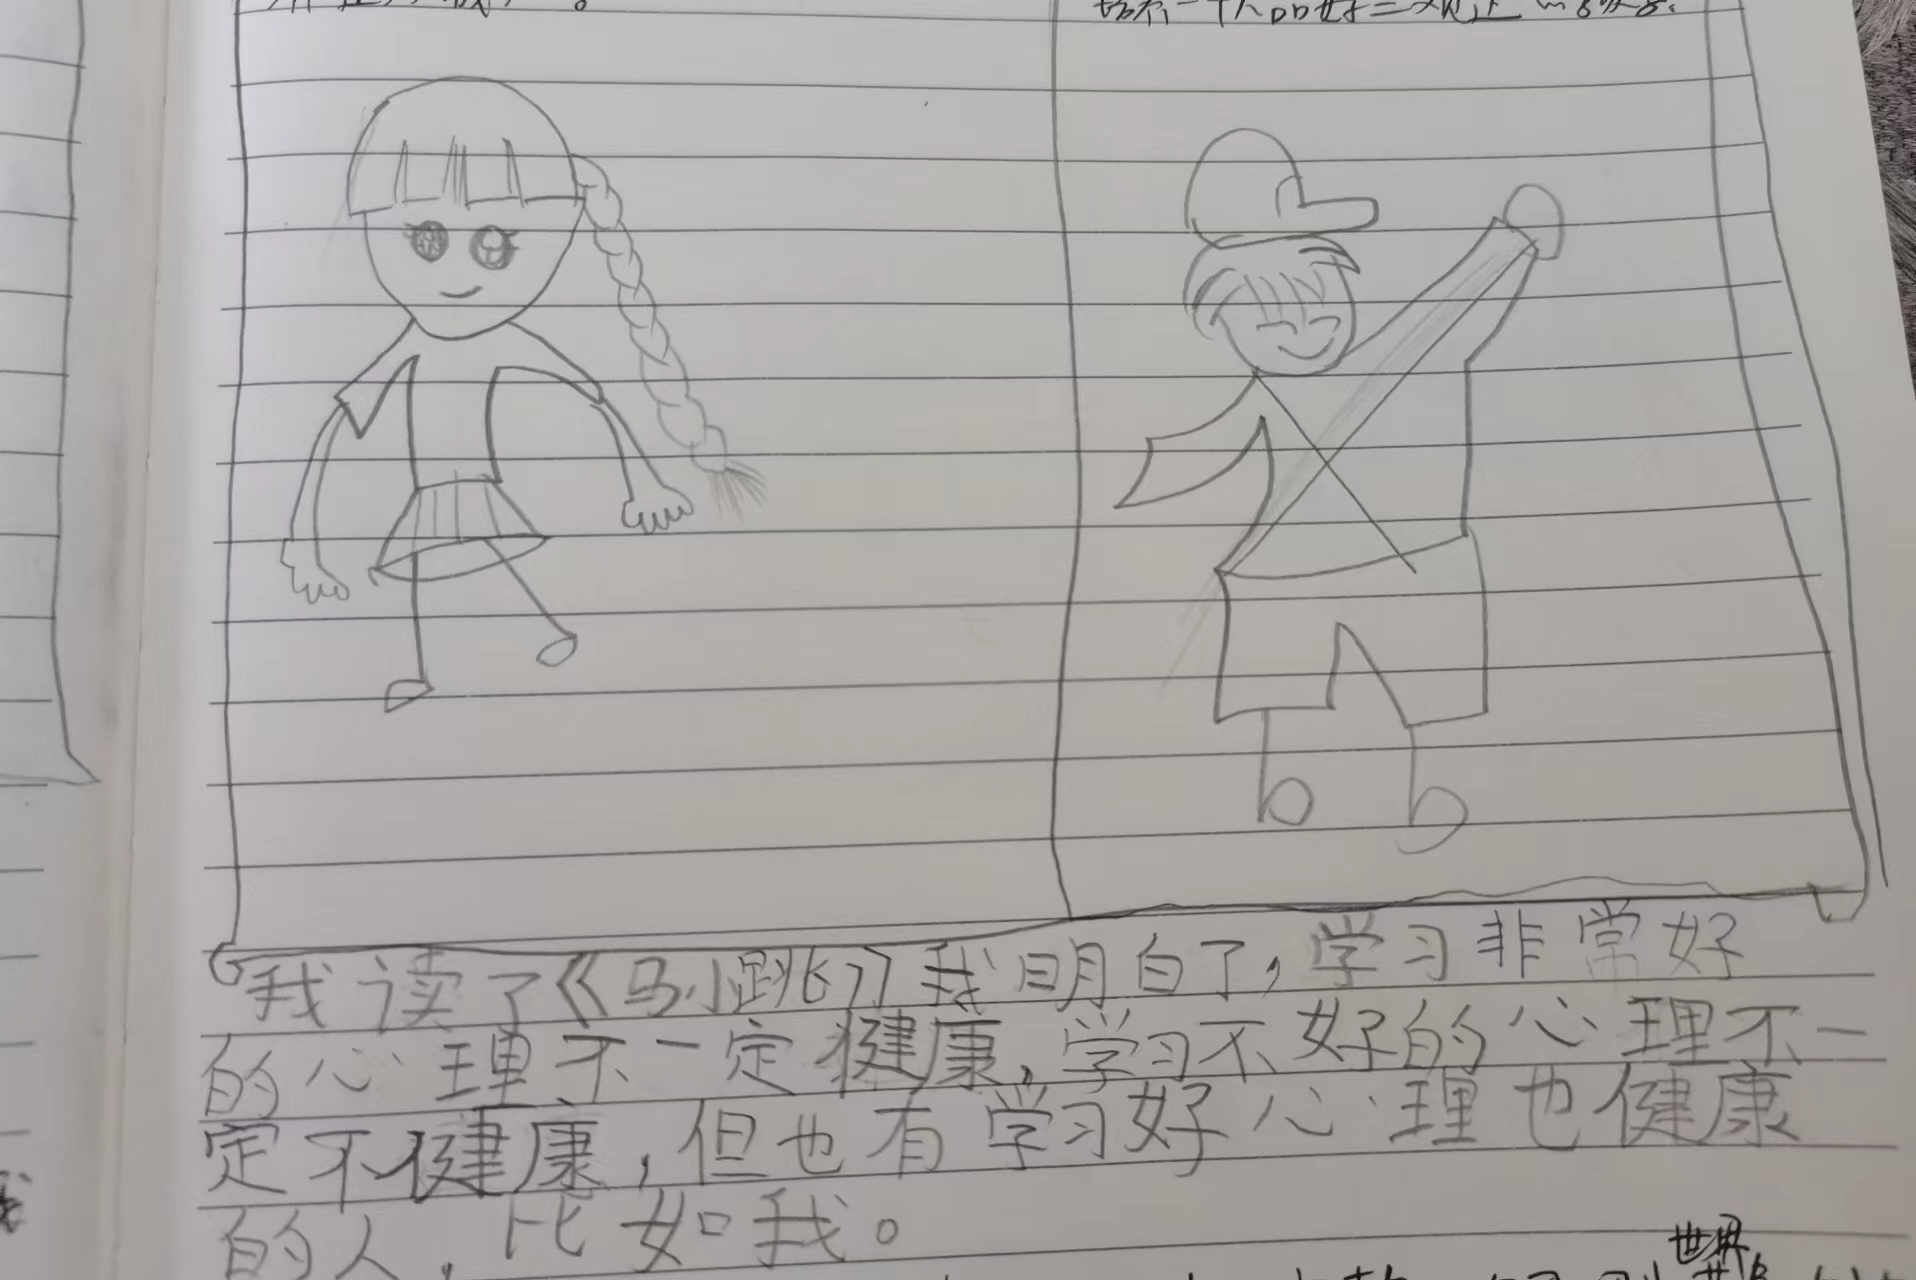 我读了《马小跳》我明白了，学习非常好
的心理不一定健康，学习不好的心理不一
定不健康，但也有学习好心理也健康
的人，比如我。
世界